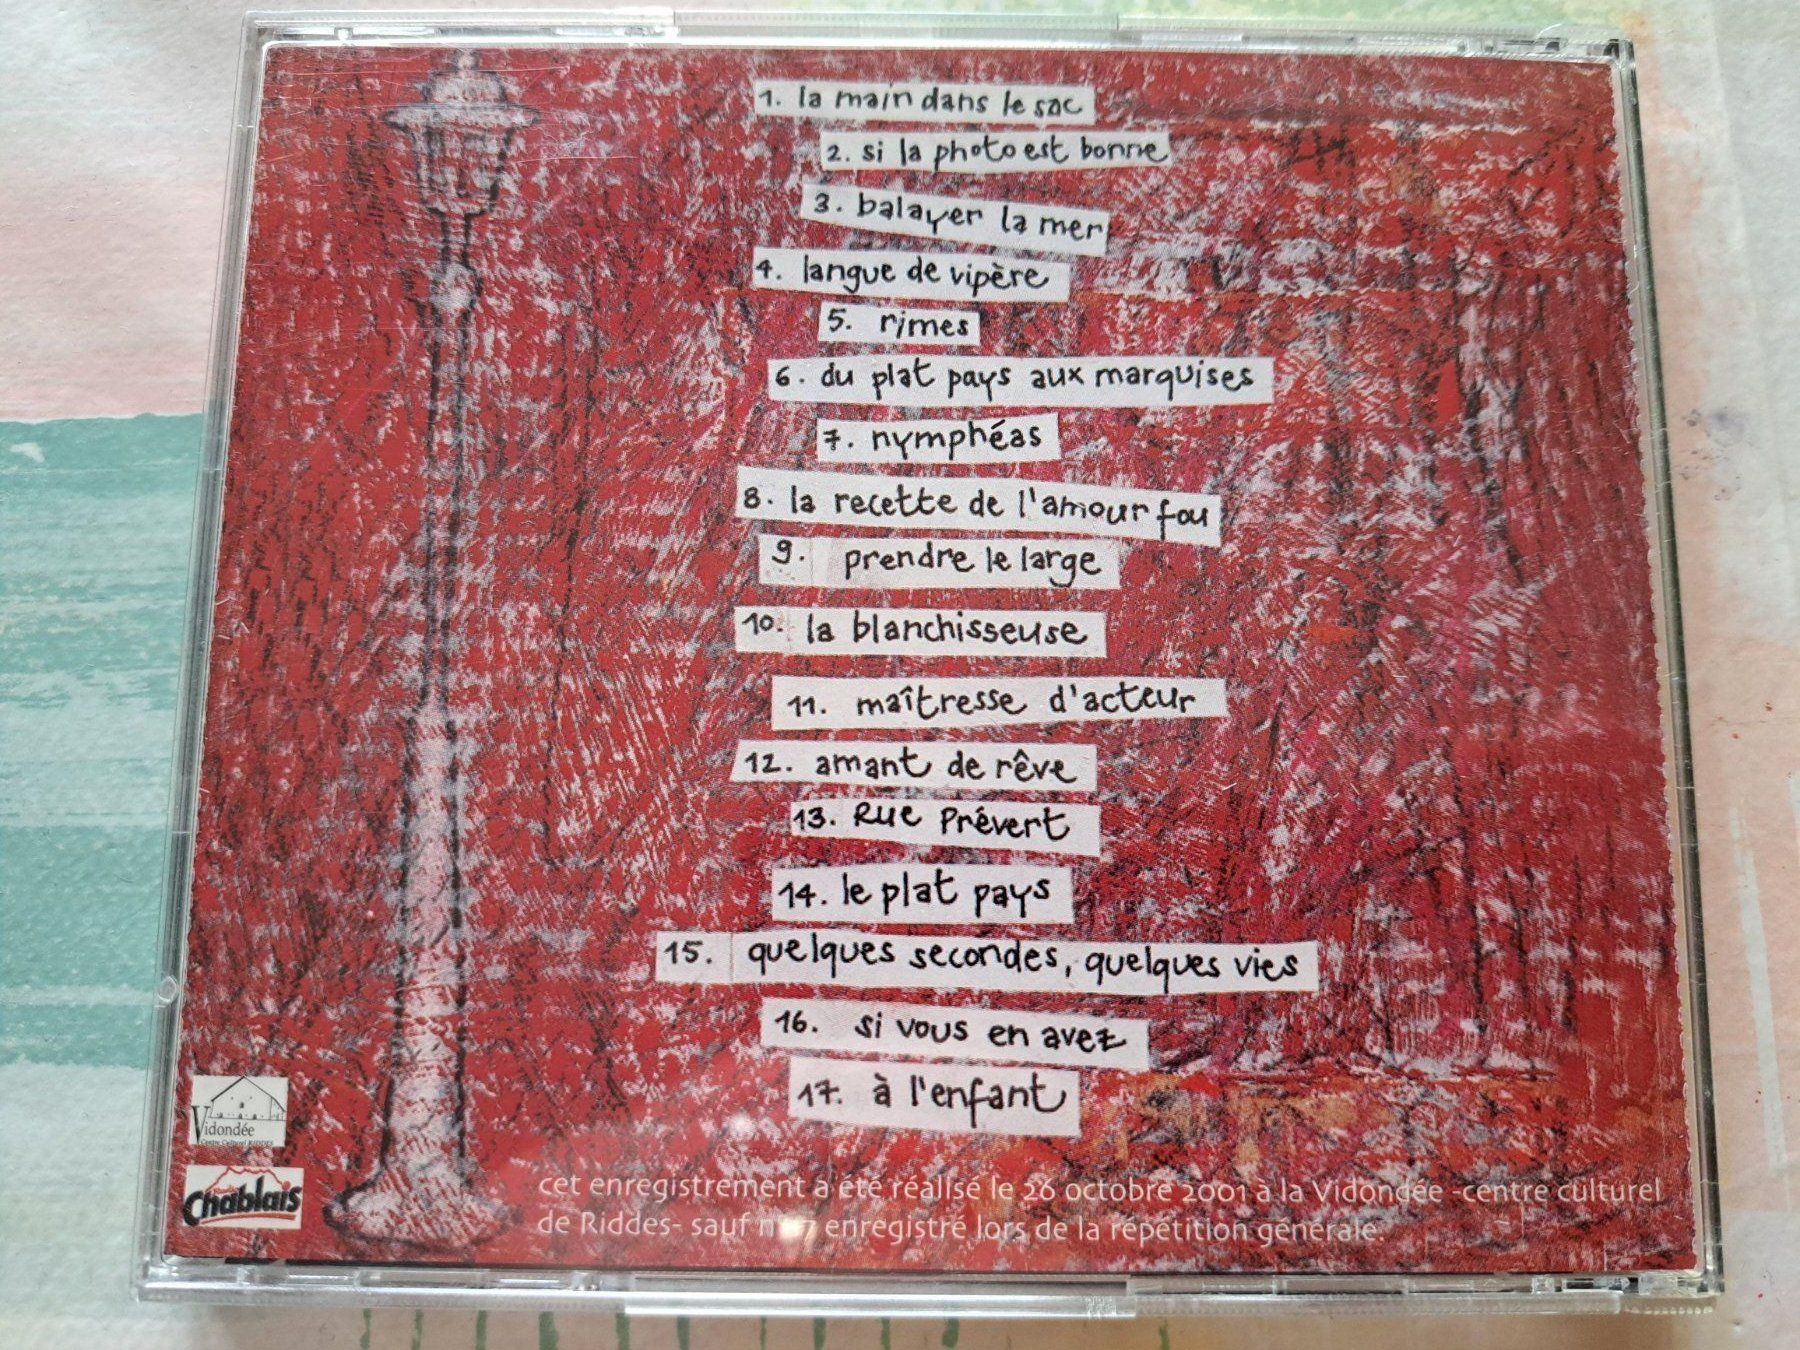 1. la main dans le sac
2. si la photo est bonne
3. balayer la mer
4. langue de vipère
5. rimes
6. du plat pays aux marquises
7. nymphéas
8. la recette de l'amour fou
9. prendre le large
10. la blanchisseuse
11. maîtresse d'acteur
12. amant de rêve
13. Rue Prévert
14. le plat pays
15. quelques secondes, quelques vies
16. si vous en avez
17. à l'enfant
Vidondée
Centre Culturel RIDDES
Chablais
cet enregistrement a été réalisé le 26 octobre 2001 à la Vidondée -centre culturel
de Riddes- sauf 7 enregistré lors de la répétition générale.